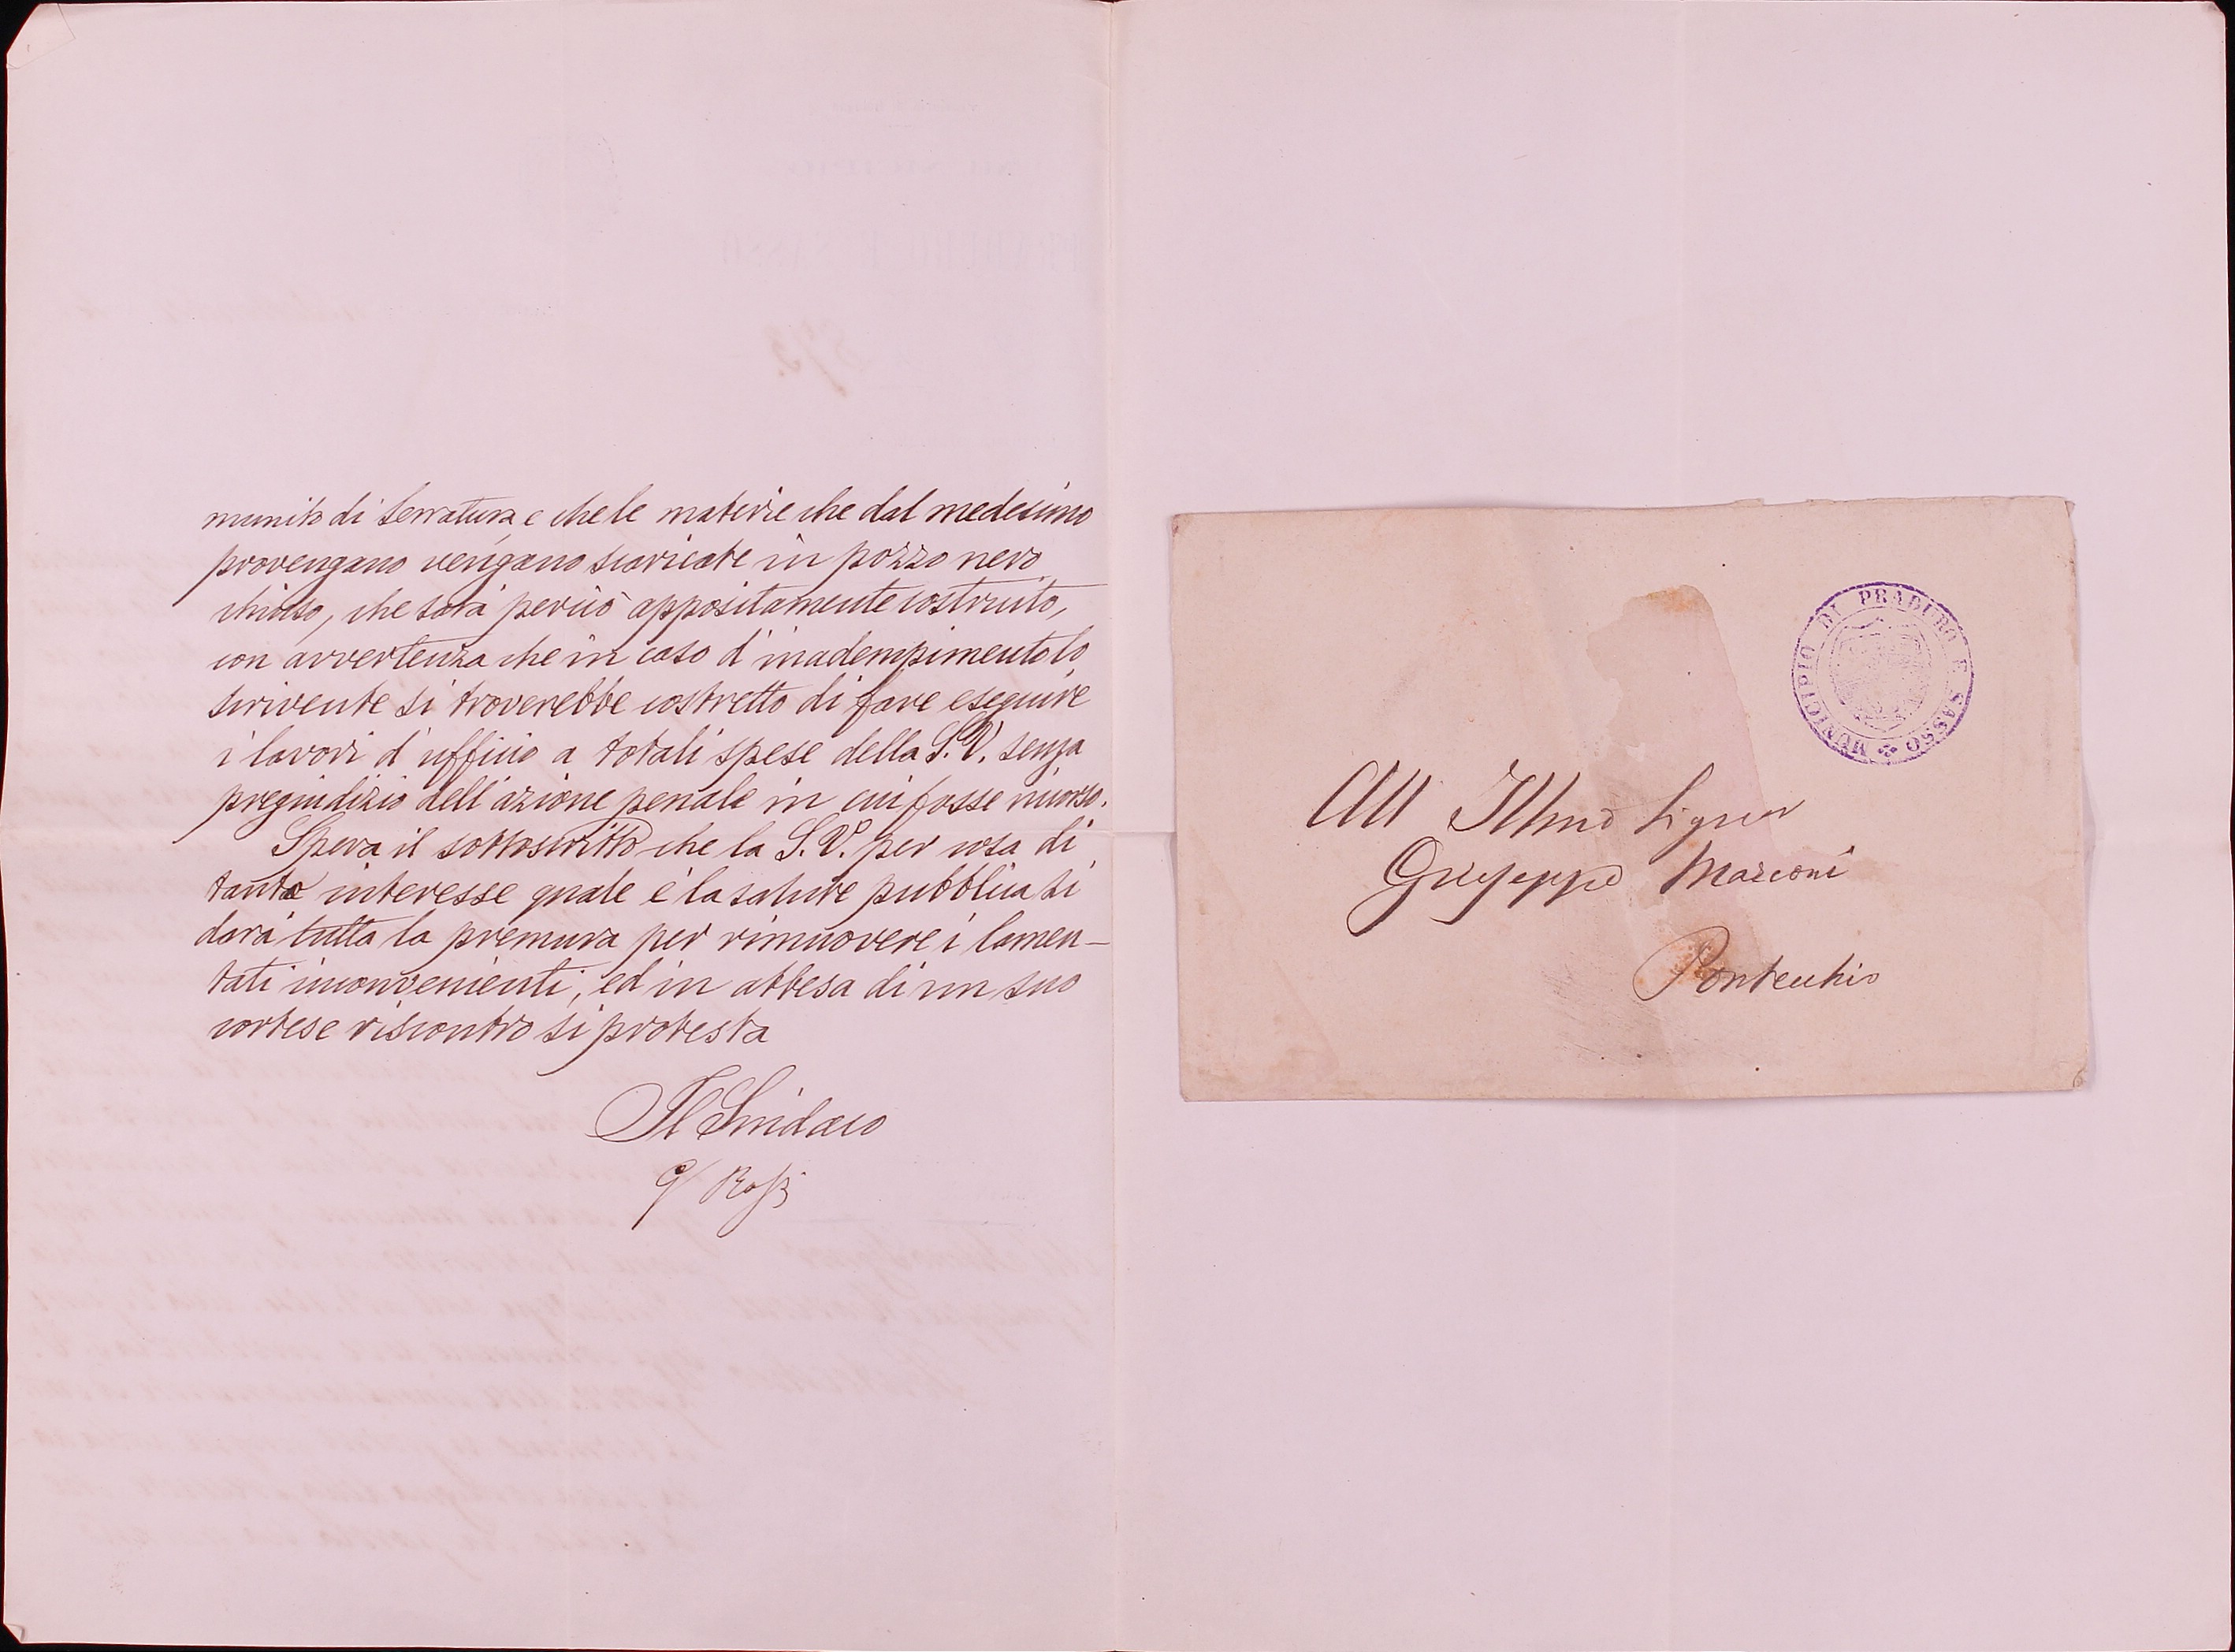 munito di serratura, e che le materie che dal medesimo
provengano vengano scaricate in pozzo nero
chiuso, che sarà perciò appositamente costruito,
con avvertenza che in caso d'inadempimento lo
scrivente si troverebbe costretto di fare eseguire
i lavori d'ufficio a totali spese della S. V. senza
pregiudizio dell'azione penale in cui fosse incorso.
Spera il sottoscritto che la S. V. per cosa di
tanto interesse quale è la salute pubblica si
darà tutta la premura per rimuovere i lamen-
tati inconvenienti, ed in attesa di un suo
cortese riscontro si protesta
Il Sindaco
G Rossi
MUNICIPIO DI PRADURO E SASSO
All Illmo Signor
Giuseppe Marconi
Pontecchio